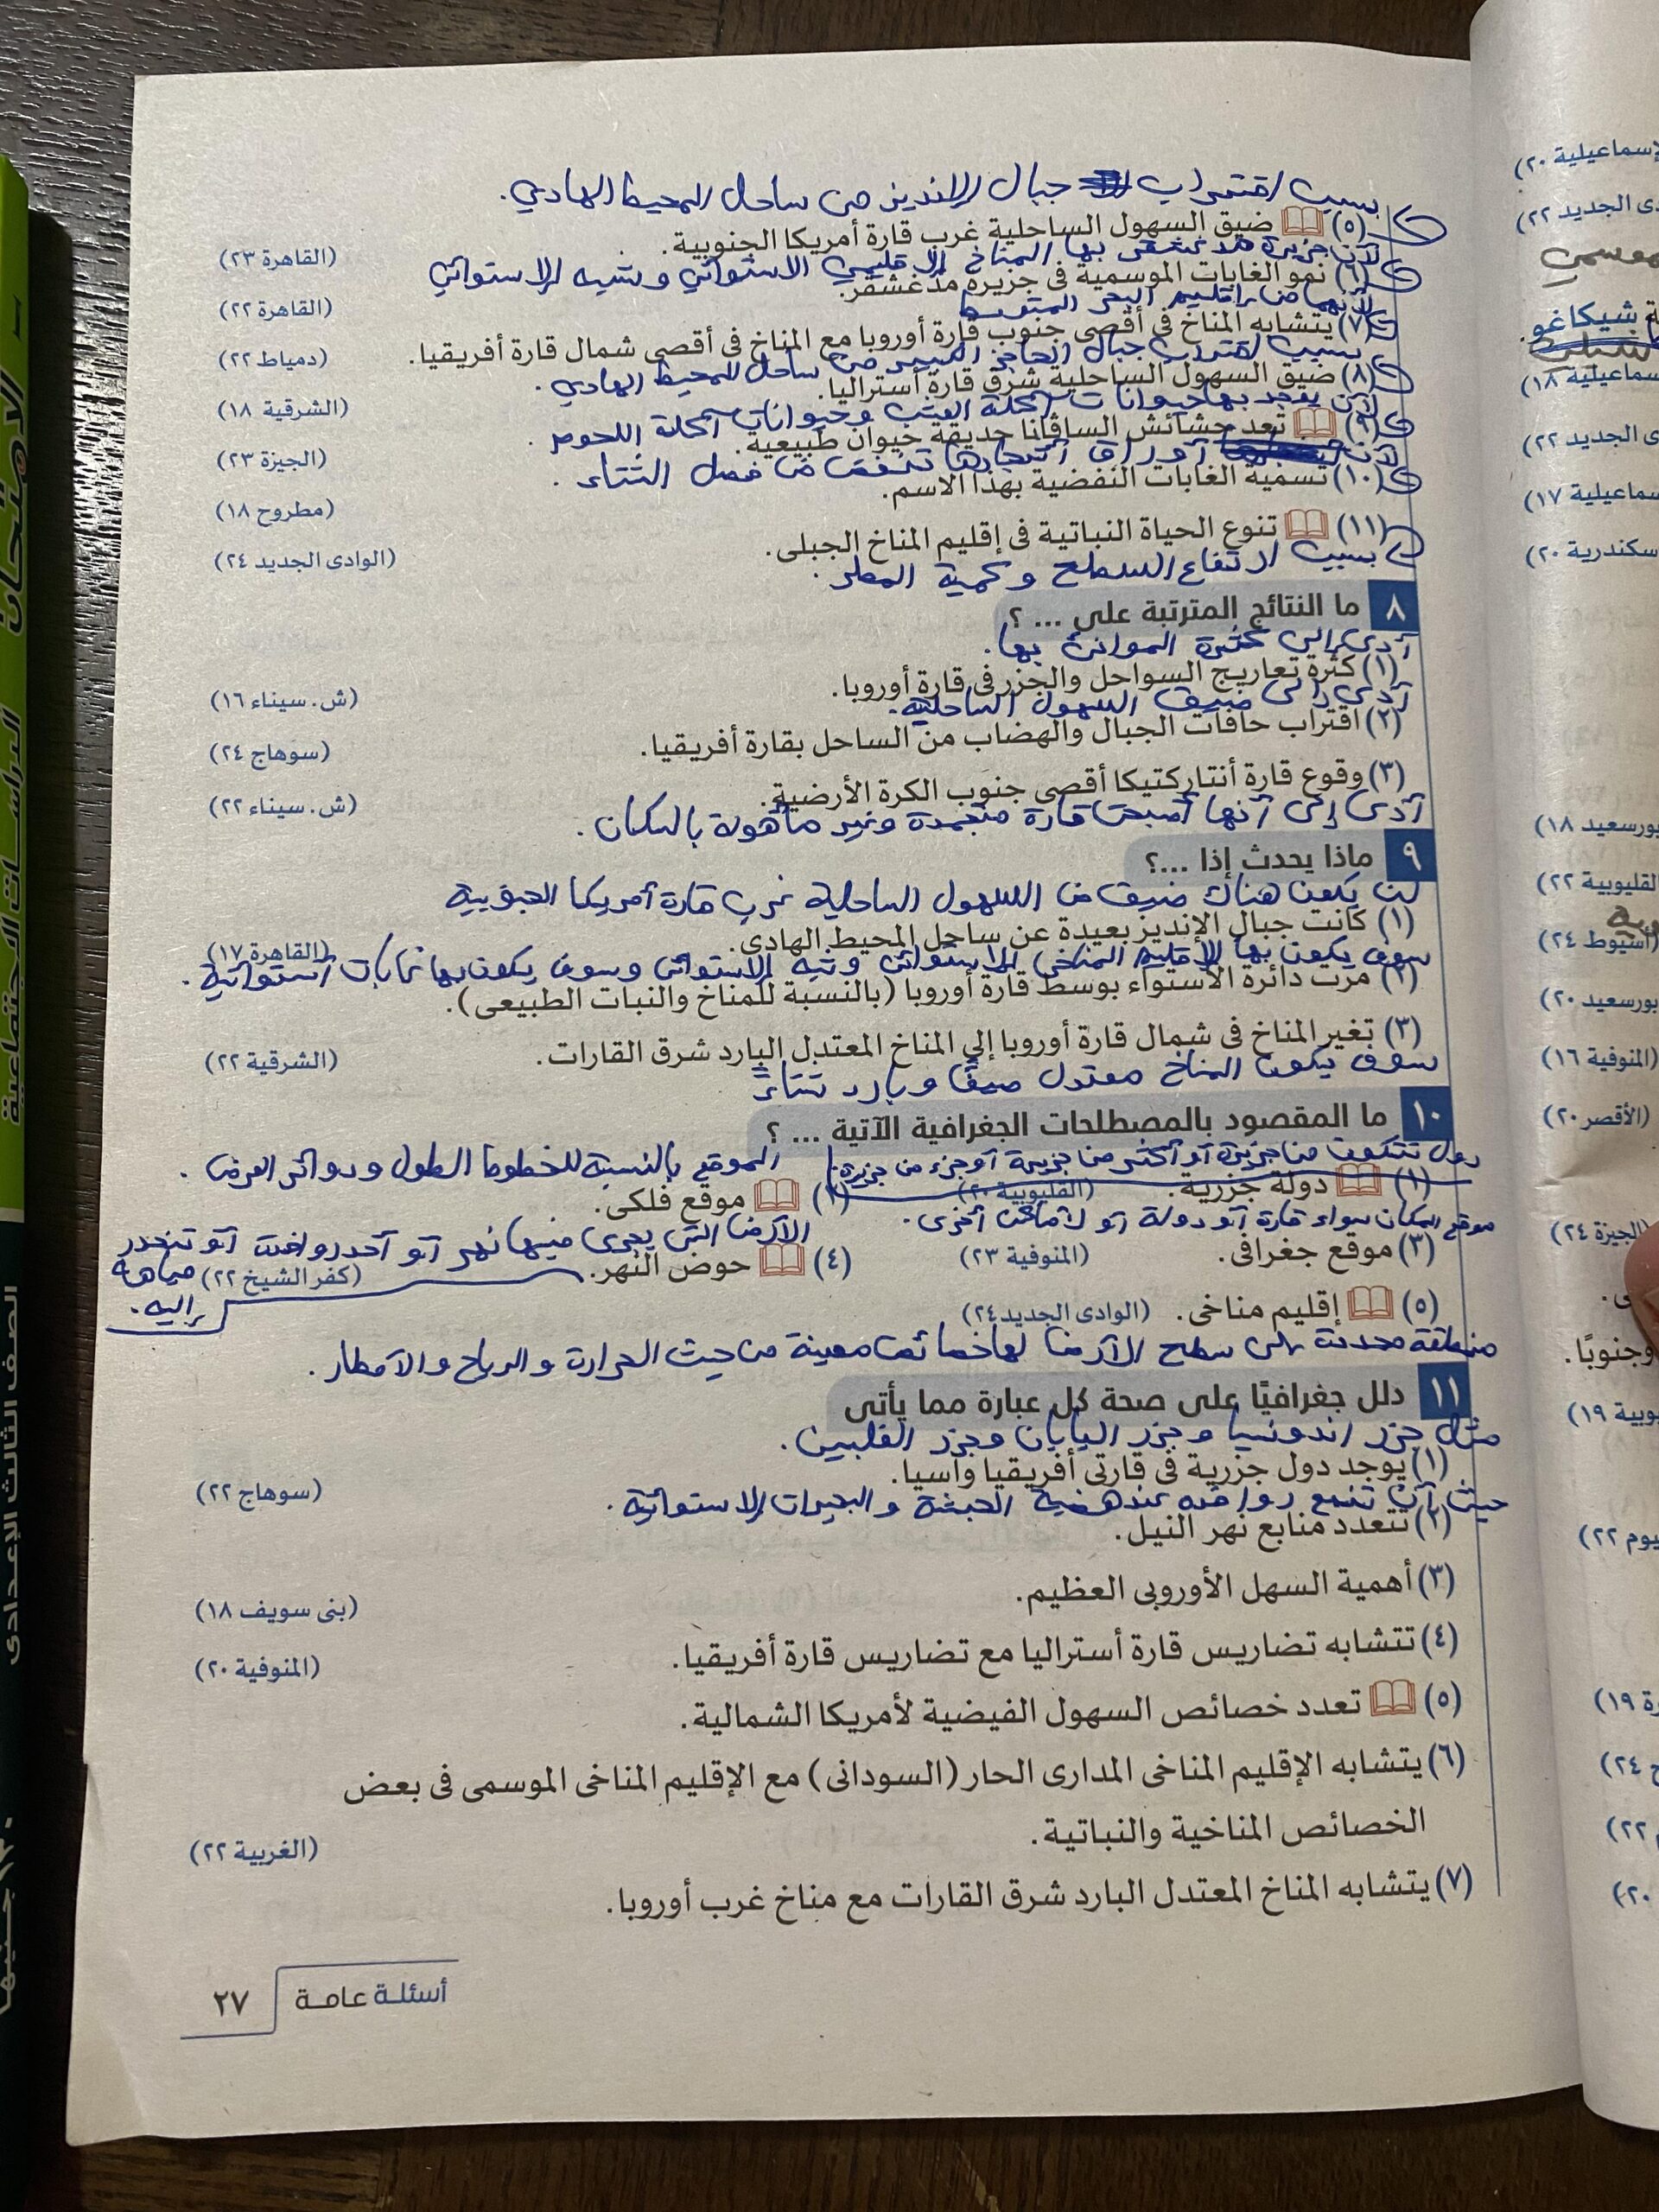 بسبب اقتراب جبال الإنديز من ساحل المحيط الهادي.
(٥) ضيق السهول الساحلية غرب قارة أمريكا الجنوبية. (القاهرة ٢٣)
لأن جزيرة مدغشقر بها المناخ الإقليمي الاستوائي وشبه الاستوائي
(٦) نمو الغابات الموسمية فى جزيرة مدغشقر. (القاهرة ٢٢)
لأنهما من إقليم البحر المتوسط
(٧) يتشابه المناخ فى أقصى جنوب قارة أوروبا مع المناخ فى أقصى شمال قارة أفريقيا. (دمياط ٢٢)
بسبب اقتراب جبال الحاجز الكبير من ساحل المحيط الهادي.
(٨) ضيق السهول الساحلية شرق قارة أستراليا. (الشرقية ١٨)
لأن يوجد بها حيوانات آكلة العشب وحيوانات آكلة اللحوم.
(٩) تعد حشائش السافانا حديقة حيوان طبيعية. (الجيزة ٢٣)
لأن أوراق أشجارها تنفض من فصل الشتاء.
(١٠) تسمية الغابات النفضية بهذا الاسم. (مطروح ١٨)
(١١) تنوع الحياة النباتية فى إقليم المناخ الجبلى. (الوادى الجديد ٢٤)
بسبب ارتفاع السطح وكمية المطر.
٨ ما النتائج المترتبة على ... ؟
أدى إلى كثرة الموانئ بها.
(١) كثرة تعاريج السواحل والجزر فى قارة أوروبا. (ش. سيناء ١٦)
أدى إلى ضيق السهول الساحلية.
(٢) اقتراب حافات الجبال والهضاب من الساحل بقارة أفريقيا. (سوهاج ٢٤)
(٣) وقوع قارة أنتاركتيكا أقصى جنوب الكرة الأرضية. (ش. سيناء ٢٢)
أدى إلى أنها أصبحت قارة متجمدة وغير مأهولة بالسكان.
٩ ماذا يحدث إذا ...؟
لن يكون هناك ضيق من السهول الساحلية غرب قارة أمريكا الجنوبية
(١) كانت جبال الإنديز بعيدة عن ساحل المحيط الهادى. (القاهرة ١٧)
سوف يكون بها الإقليم المناخي الاستوائي وشبه الاستوائي وسوف يكون بها غابات استوائية.
(٢) مرت دائرة الاستواء بوسط قارة أوروبا (بالنسبة للمناخ والنبات الطبيعى).
(٣) تغير المناخ فى شمال قارة أوروبا إلى المناخ المعتدل البارد شرق القارات. (الشرقية ٢٢)
سوف يكون المناخ معتدل صيفًا وبارد شتاءً
١٠ ما المقصود بالمصطلحات الجغرافية الآتية ... ؟
دول تتكون من جزيرة أو أكثر من جزيرة أو جزء من جزيرة. الموقع بالنسبة للخطوط الطول ودوائر العرض.
(١) دولة جزرية. (القليوبية ٢٠) (٢) موقع فلكى.
موقع المكان سواء قارة أو دولة أو لأماكن أخرى. الأرض التي يجري فيها نهر أو أحد روافده أو تنحدر مياهه إليه.
(٣) موقع جغرافى. (المنوفية ٢٣) (٤) حوض النهر. (كفر الشيخ ٢٢)
(٥) إقليم مناخى. (الوادى الجديد ٢٤)
منطقة محددة على سطح الأرض لها خصائص معينة من حيث الحرارة والرياح والأمطار.
١١ دلل جغرافيًا على صحة كل عبارة مما يأتى
مثل جزر اندونسيا وجزر اليابان وجزر الفلبين.
(١) يوجد دول جزرية فى قارتى أفريقيا وآسيا. (سوهاج ٢٢)
حيث أن تنبع روافده عند هضبة الحبشة والبحيرات الاستوائية.
(٢) تتعدد منابع نهر النيل.
(٣) أهمية السهل الأوروبى العظيم. (بنى سويف ١٨)
(٤) تتشابه تضاريس قارة أستراليا مع تضاريس قارة أفريقيا. (المنوفية ٢٠)
(٥) تعدد خصائص السهول الفيضية لأمريكا الشمالية.
(٦) يتشابه الإقليم المناخى المدارى الحار (السودانى) مع الإقليم المناخى الموسمى فى بعض
الخصائص المناخية والنباتية. (الغربية ٢٢)
(٧) يتشابه المناخ المعتدل البارد شرق القارات مع مناخ غرب أوروبا.
أسئلة عامة ٢٧